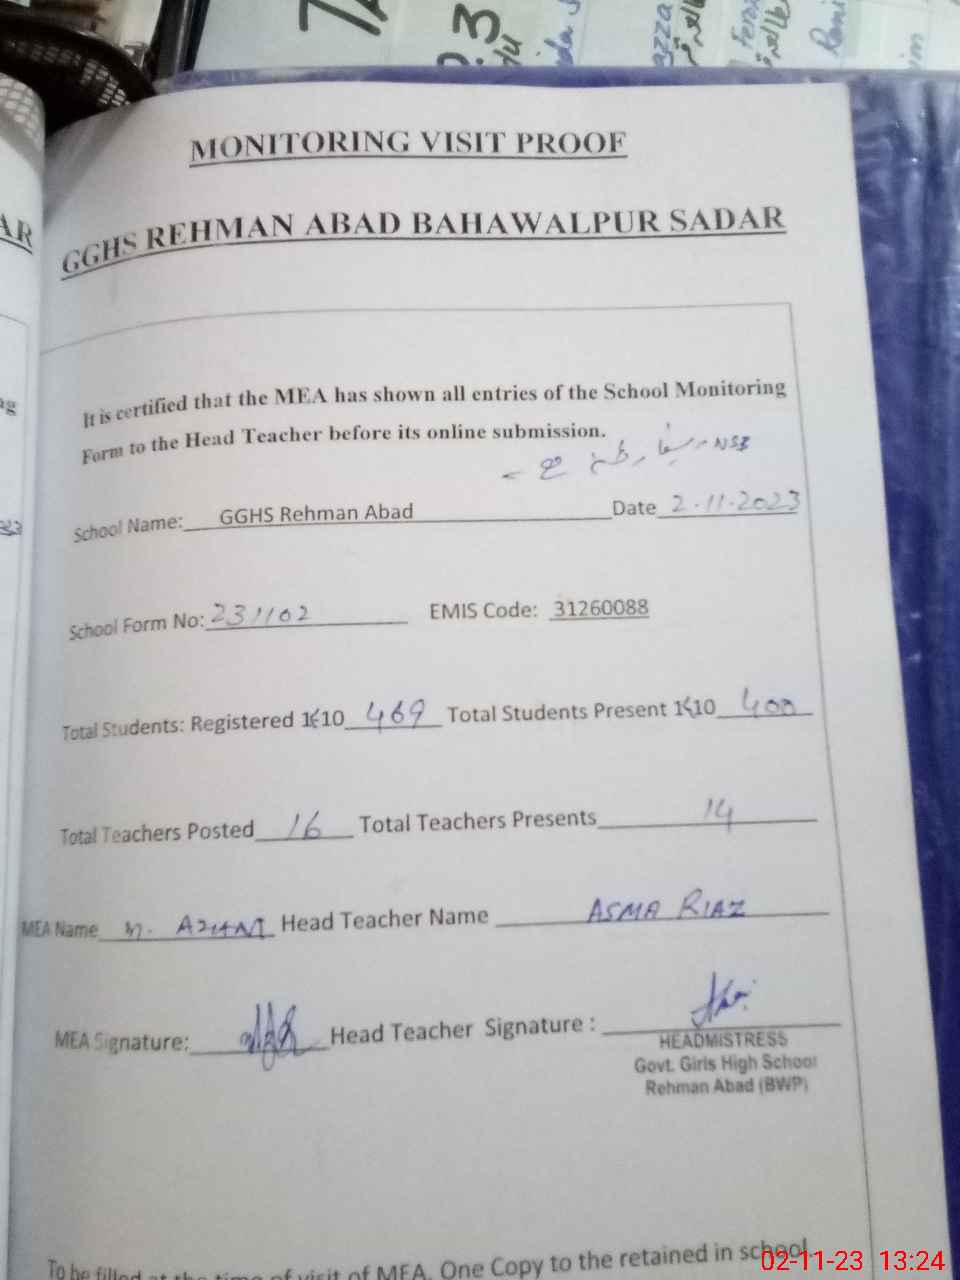 MONITORING VISIT PROOF
GGHS REHMAN ABAD BAHAWALPUR SADAR
It is certified that the MEA has shown all entries of the School Monitoring
Form to the Head Teacher before its online submission.
NSB
School Name: GGHS Rehman Abad Date 2-11-2023
School Form No: 231102 EMIS Code: 31260088
Total Students: Registered 1-10 469 Total Students Present 1-10 400
Total Teachers Posted 16 Total Teachers Presents 14
MEA Name M. AZAM Head Teacher Name ASMA RIAZ
MEA Signature: Head Teacher Signature :
HEADMISTRESS
Govt. Girls High School
Rehman Abad (BWP)
To be filled at the time of visit of MEA. One Copy to the retained in school.
02-11-23 13:24